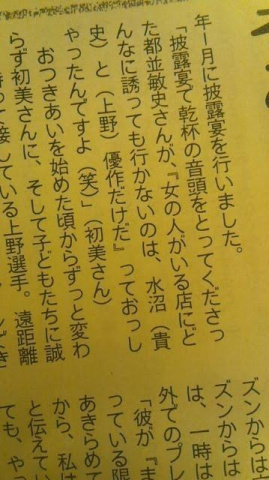 年1月に披露宴を行いました。
「披露宴で乾杯の音頭をとってくださっ
た都並敏史さんが、『女の人がいる店にど
んなに誘っても行かないのは、水沼(貴
史)と(上野)優作だけだ』っておっし
ゃったんですよ(笑)」(初美さん)
おつきあいを始めた頃からずっと変わ
らず初美さんに、そして子どもたちに誠
接している上野選手。遠距離
ズンからは
ズンからは
は、一時は
外でのプレ
「彼が『ま
っている限
あきらめて
から、私は
と伝えてい
ても、や